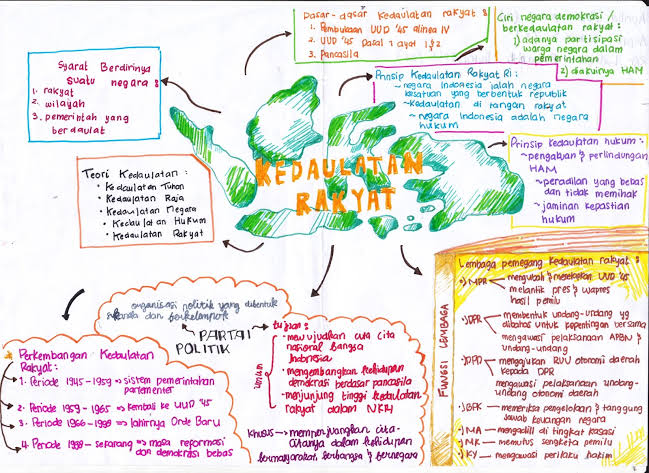 Dasar-dasar Kedaulatan rakyat :
1. Pembukaan UUD '45 alinea IV
2. UUD '45 Pasal 1 ayat 1,2
3. Pancasila
Ciri negara demokrasi /
berkedaulatan rakyat :
1) adanya partisipasi
warga negara dalam
pemerintahan
2) diakuinya HAM
Syarat Berdirinya
Suatu negara :
1. rakyat
2. wilayah
3. pemerintah yang
berdaulat
Prinsip Kedaulatan Rakyat RI :
~ negara Indonesia ialah negara
kesatuan yang berbentuk republik
~ Kedaulatan di tangan rakyat
~ negara Indonesia adalah negara
hukum
KEDAULATAN
RAKYAT
Prinsip Kedaulatan hukum :
~ pengakuan & perlindungan
HAM
~ peradilan yang bebas
dan tidak memihak
~ jaminan kepastian
hukum
Teori Kedaulatan :
• Kedaulatan Tuhan
• Kedaulatan Raja
• Kedaulatan Negara
• Kedaulatan Hukum
• Kedaulatan Rakyat
Lembaga pemegang Kedaulatan rakyat :
FUNGSI LEMBAGA
•) MPR → mengubah & menetapkan UUD '45
melantik pres & wapres
hasil pemilu
•) DPR → membentuk undang-undang yg
dibahas untuk kepentingan bersama
mengawasi pelaksanaan APBN &
undang-undang
•) DPD → mengajukan RUU otonomi daerah
kepada DPR
mengawasi pelaksanaan undang-
undang otonomi daerah
•) BPK → memeriksa pengelolaan & tanggung
jawab keuangan negara
•) MA → mengadili di tingkat kasasi
•) MK → memutus sengketa pemilu
•) KY → mengawasi perilaku hakim
organisasi politik yang dibentuk
dan berkelompok
PARTAI
POLITIK
tujuan :
umum
• mewujudkan cita cita
nasional bangsa
Indonesia
• mengembangkan kehidupan
demokrasi berdasar pancasila
• menjunjung tinggi kedaulatan
rakyat dalam NKRI
khusus → memperjuangkan cita-
citanya dalam kehidupan
bermasyarakat, berbangsa & bernegara
Perkembangan Kedaulatan
Rakyat :
1. Periode 1945 - 1959 ⇒ sistem pemerintahan
parlementer
2. Periode 1959 - 1965 ⇒ kembali ke UUD '45
3. Periode 1966 - 1998 ⇒ lahirnya Orde Baru
4. Periode 1998 - sekarang ⇒ masa reformasi
dan demokrasi bebas